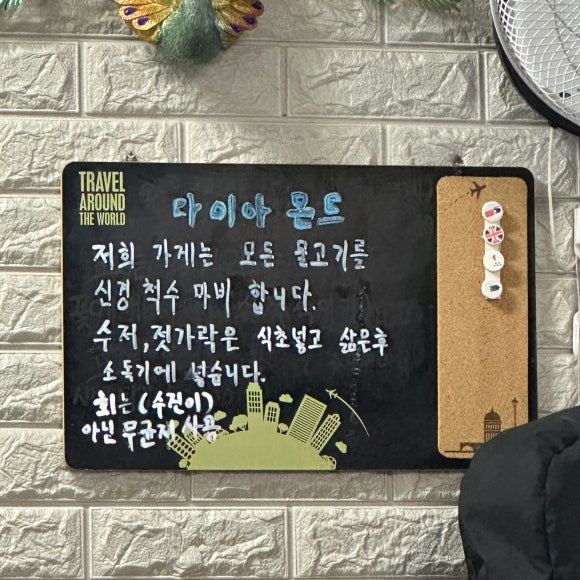 TRAVEL
AROUND
THE WORLD
다이아 몬드
저희 가게는 모든 물고기를
신경 척수 마비 합니다.
수저,젓가락은 식초넣고 삶은후
소독기에 넣습니다.
회는(수건이)
아닌 무균지 사용